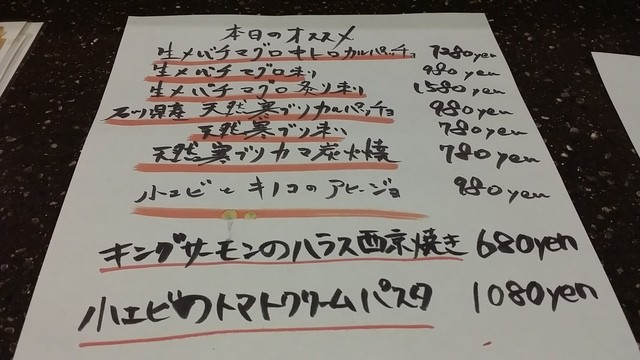 本日のオススメ
生メバチマグロ中トロカルパッチョ 1280yen
生メバチマグロ刺 980yen
生メバチマグロ盛り刺 1580yen
石川県産 天然寒ブリカルパッチョ 980yen
天然寒ブリ刺 780yen
天然寒ブリカマ炭火焼 780yen
小エビとキノコのアヒージョ 980yen
キングサーモンのハラス西京焼き 680yen
小エビのトマトクリームパスタ 1080yen